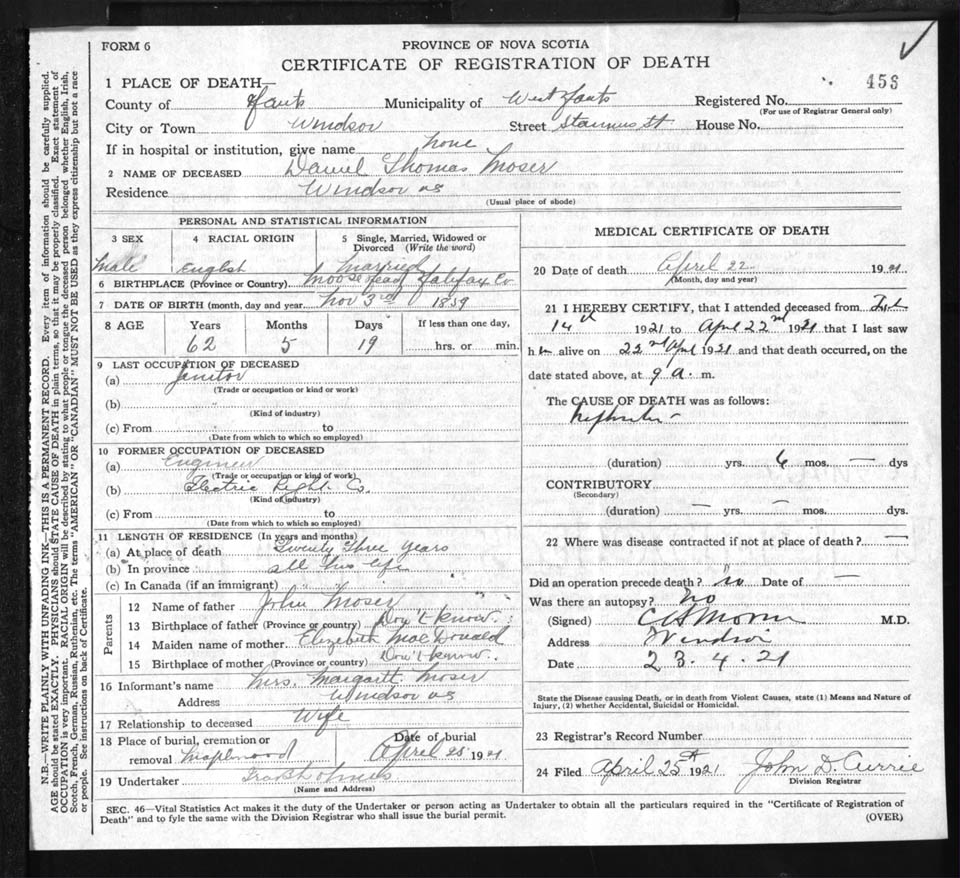 FORM 6
PROVINCE OF NOVA SCOTIA
CERTIFICATE OF REGISTRATION OF DEATH
458
1 PLACE OF DEATH—
County of Hants Municipality of West Hants Registered No.
(For use of Registrar General only)
City or Town Windsor Street Stannus St House No.
If in hospital or institution, give name none
2 NAME OF DECEASED Daniel Thomas Moser
Residence Windsor NS
(Usual place of abode)
PERSONAL AND STATISTICAL INFORMATION
3 SEX 4 RACIAL ORIGIN 5 Single, Married, Widowed or
Divorced (Write the word)
Male English Married
6 BIRTHPLACE (Province or Country) Moose Head Halifax Co
7 DATE OF BIRTH (month, day and year) Nov 3rd 1859
8 AGE Years Months Days If less than one day,
62 5 19 hrs. or min.
9 LAST OCCUPATION OF DECEASED
(a) Janitor
(Trade or occupation or kind or work)
(b) "
(Kind of industry)
(c) From to
(Date from which to which so employed)
10 FORMER OCCUPATION OF DECEASED
(a) Engineer
(Trade or occupation or kind of work)
(b) Electric Light Co.
(Kind of industry)
(c) From to
(Date from which to which so employed)
11 LENGTH OF RESIDENCE (In years and months)
(a) At place of death Twenty Three years
(b) In province all his life
(c) In Canada (if an immigrant) " "
Parents
12 Name of father John Moser
13 Birthplace of father (Province or country) Don't know.
14 Maiden name of mother Elizabeth MacDonald
15 Birthplace of mother (Province or country) Don't know.
16 Informant's name Mrs. Margarett Moser
Address Windsor NS
17 Relationship to deceased Wife
18 Place of burial, cremation or Date of burial
removal Maplewood April 25 1921
19 Undertaker
(Name and Address)
MEDICAL CERTIFICATE OF DEATH
20 Date of death April 22 1921
(Month, day and year)
21 I HEREBY CERTIFY, that I attended deceased from
14th 1921 to April 22nd 1921 that I last saw
him alive on 22nd April 1921 and that death occurred, on the
date stated above, at 9 a. m.
The CAUSE OF DEATH was as follows:
Nephritis
(duration) yrs. 6 mos. — dys
CONTRIBUTORY
(Secondary)
(duration) — yrs. — mos. dys.
22 Where was disease contracted if not at place of death? —
Did an operation precede death? no Date of —
Was there an autopsy? No
(Signed) M.D.
Address Windsor
Date 23.4.21
State the Disease causing Death, or in death from Violent Causes, state (1) Means and Nature of
Injury, (2) whether Accidental, Suicidal or Homicidal.
23 Registrar's Record Number
24 Filed April 25th 1921 John D. Currie
Division Registrar
SEC. 46—Vital Statistics Act makes it the duty of the Undertaker or person acting as Undertaker to obtain all the particulars required in the "Certificate of Registration of
Death" and to fyle the same with the Division Registrar who shall issue the burial permit.
(OVER)
N.B.—WRITE PLAINLY WITH UNFADING INK—THIS IS A PERMANENT RECORD. Every item of information should be carefully supplied.
AGE should be stated EXACTLY. PHYSICIANS should STATE CAUSE OF DEATH in plain terms, so that it may be properly classified. Exact statement of
OCCUPATION is very important. RACIAL ORIGIN will be described by stating to what people or tongue the deceased person belonged whether English, Irish,
Scotch, French, German, Russian, Ruthenian, etc. The terms "AMERICAN" or "CANADIAN" MUST NOT BE USED as they express citizenship but not a race
or people. See instructions on back of Certificate.